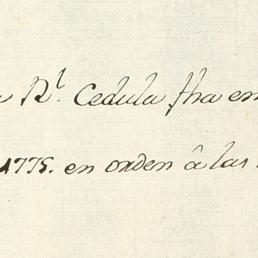 Rl. Cedula fha en
1775. en orden â las